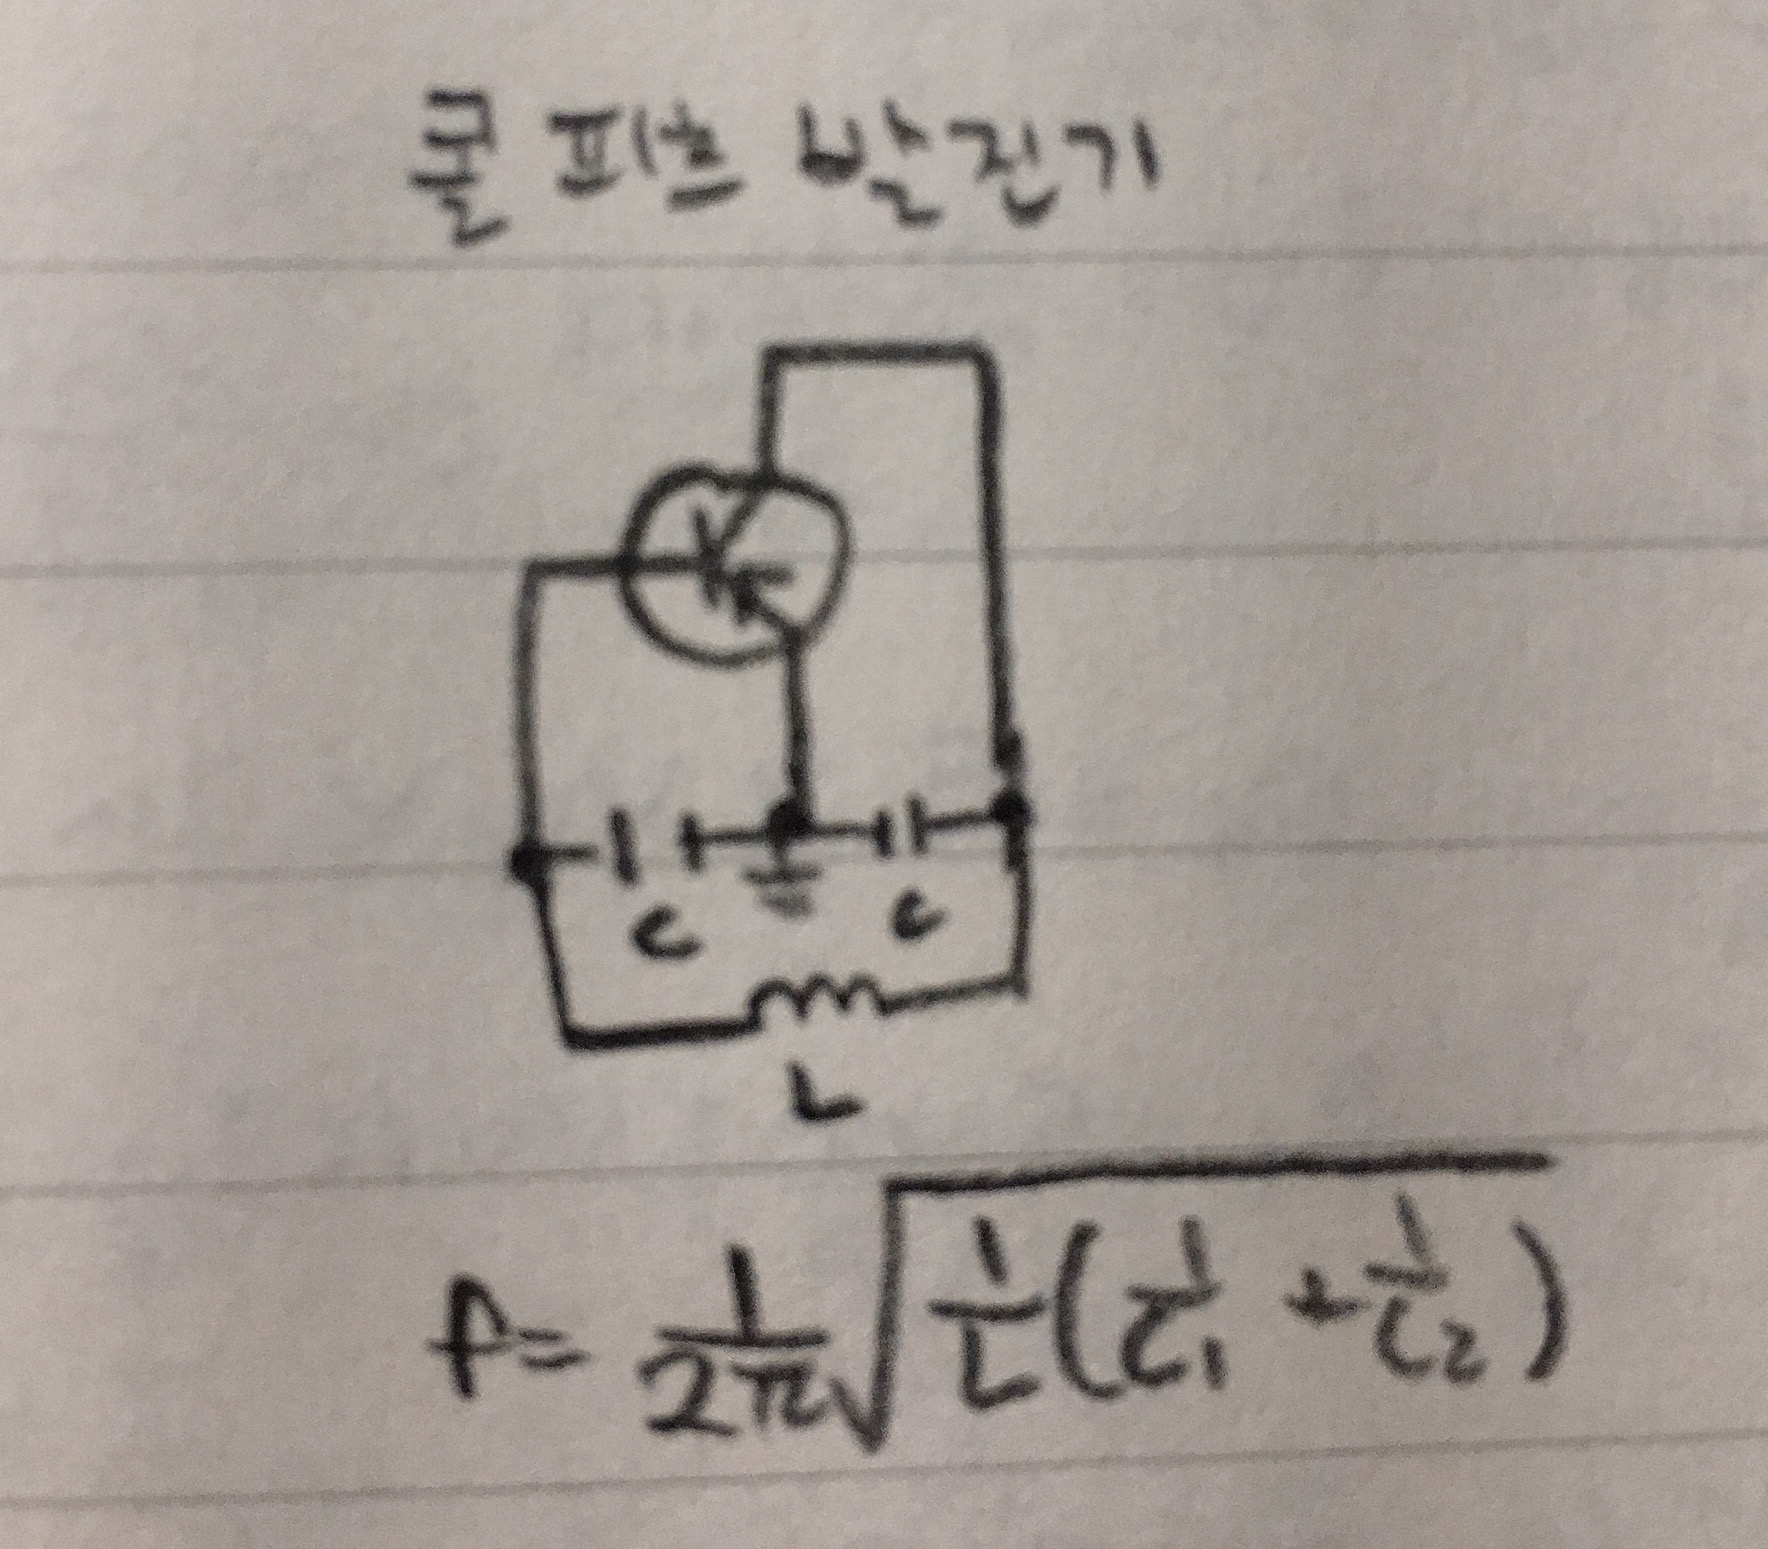 콜피츠 발진기
C C
L
f = \frac{1}{2\pi}\sqrt{\frac{1}{L}(\frac{1}{C_1} + \frac{1}{C_2})}